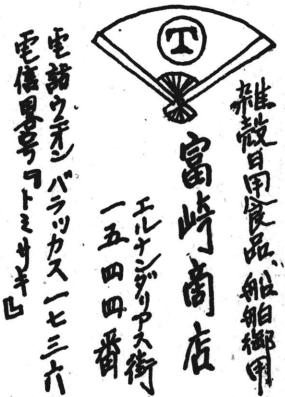 T
雑穀日用食品、船舶御用
富崎商店
エルナンダリアス街
一五四四番
電話ウニオン バラッカス一七三六
電信畧号『トミサキ』